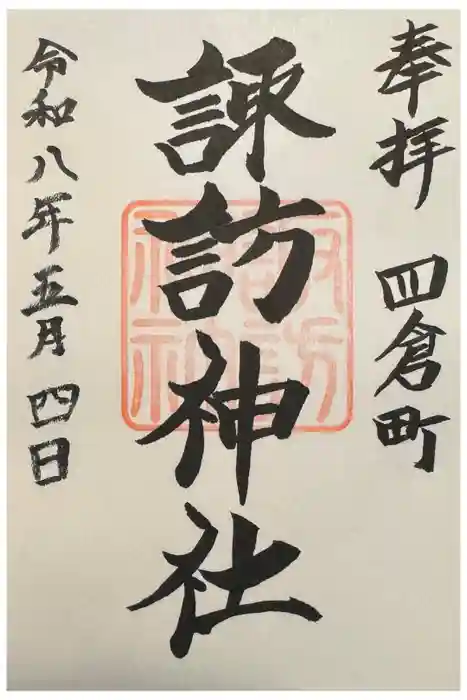 奉拝 四倉町
諏訪神社
諏訪
神社
令和八年五月四日